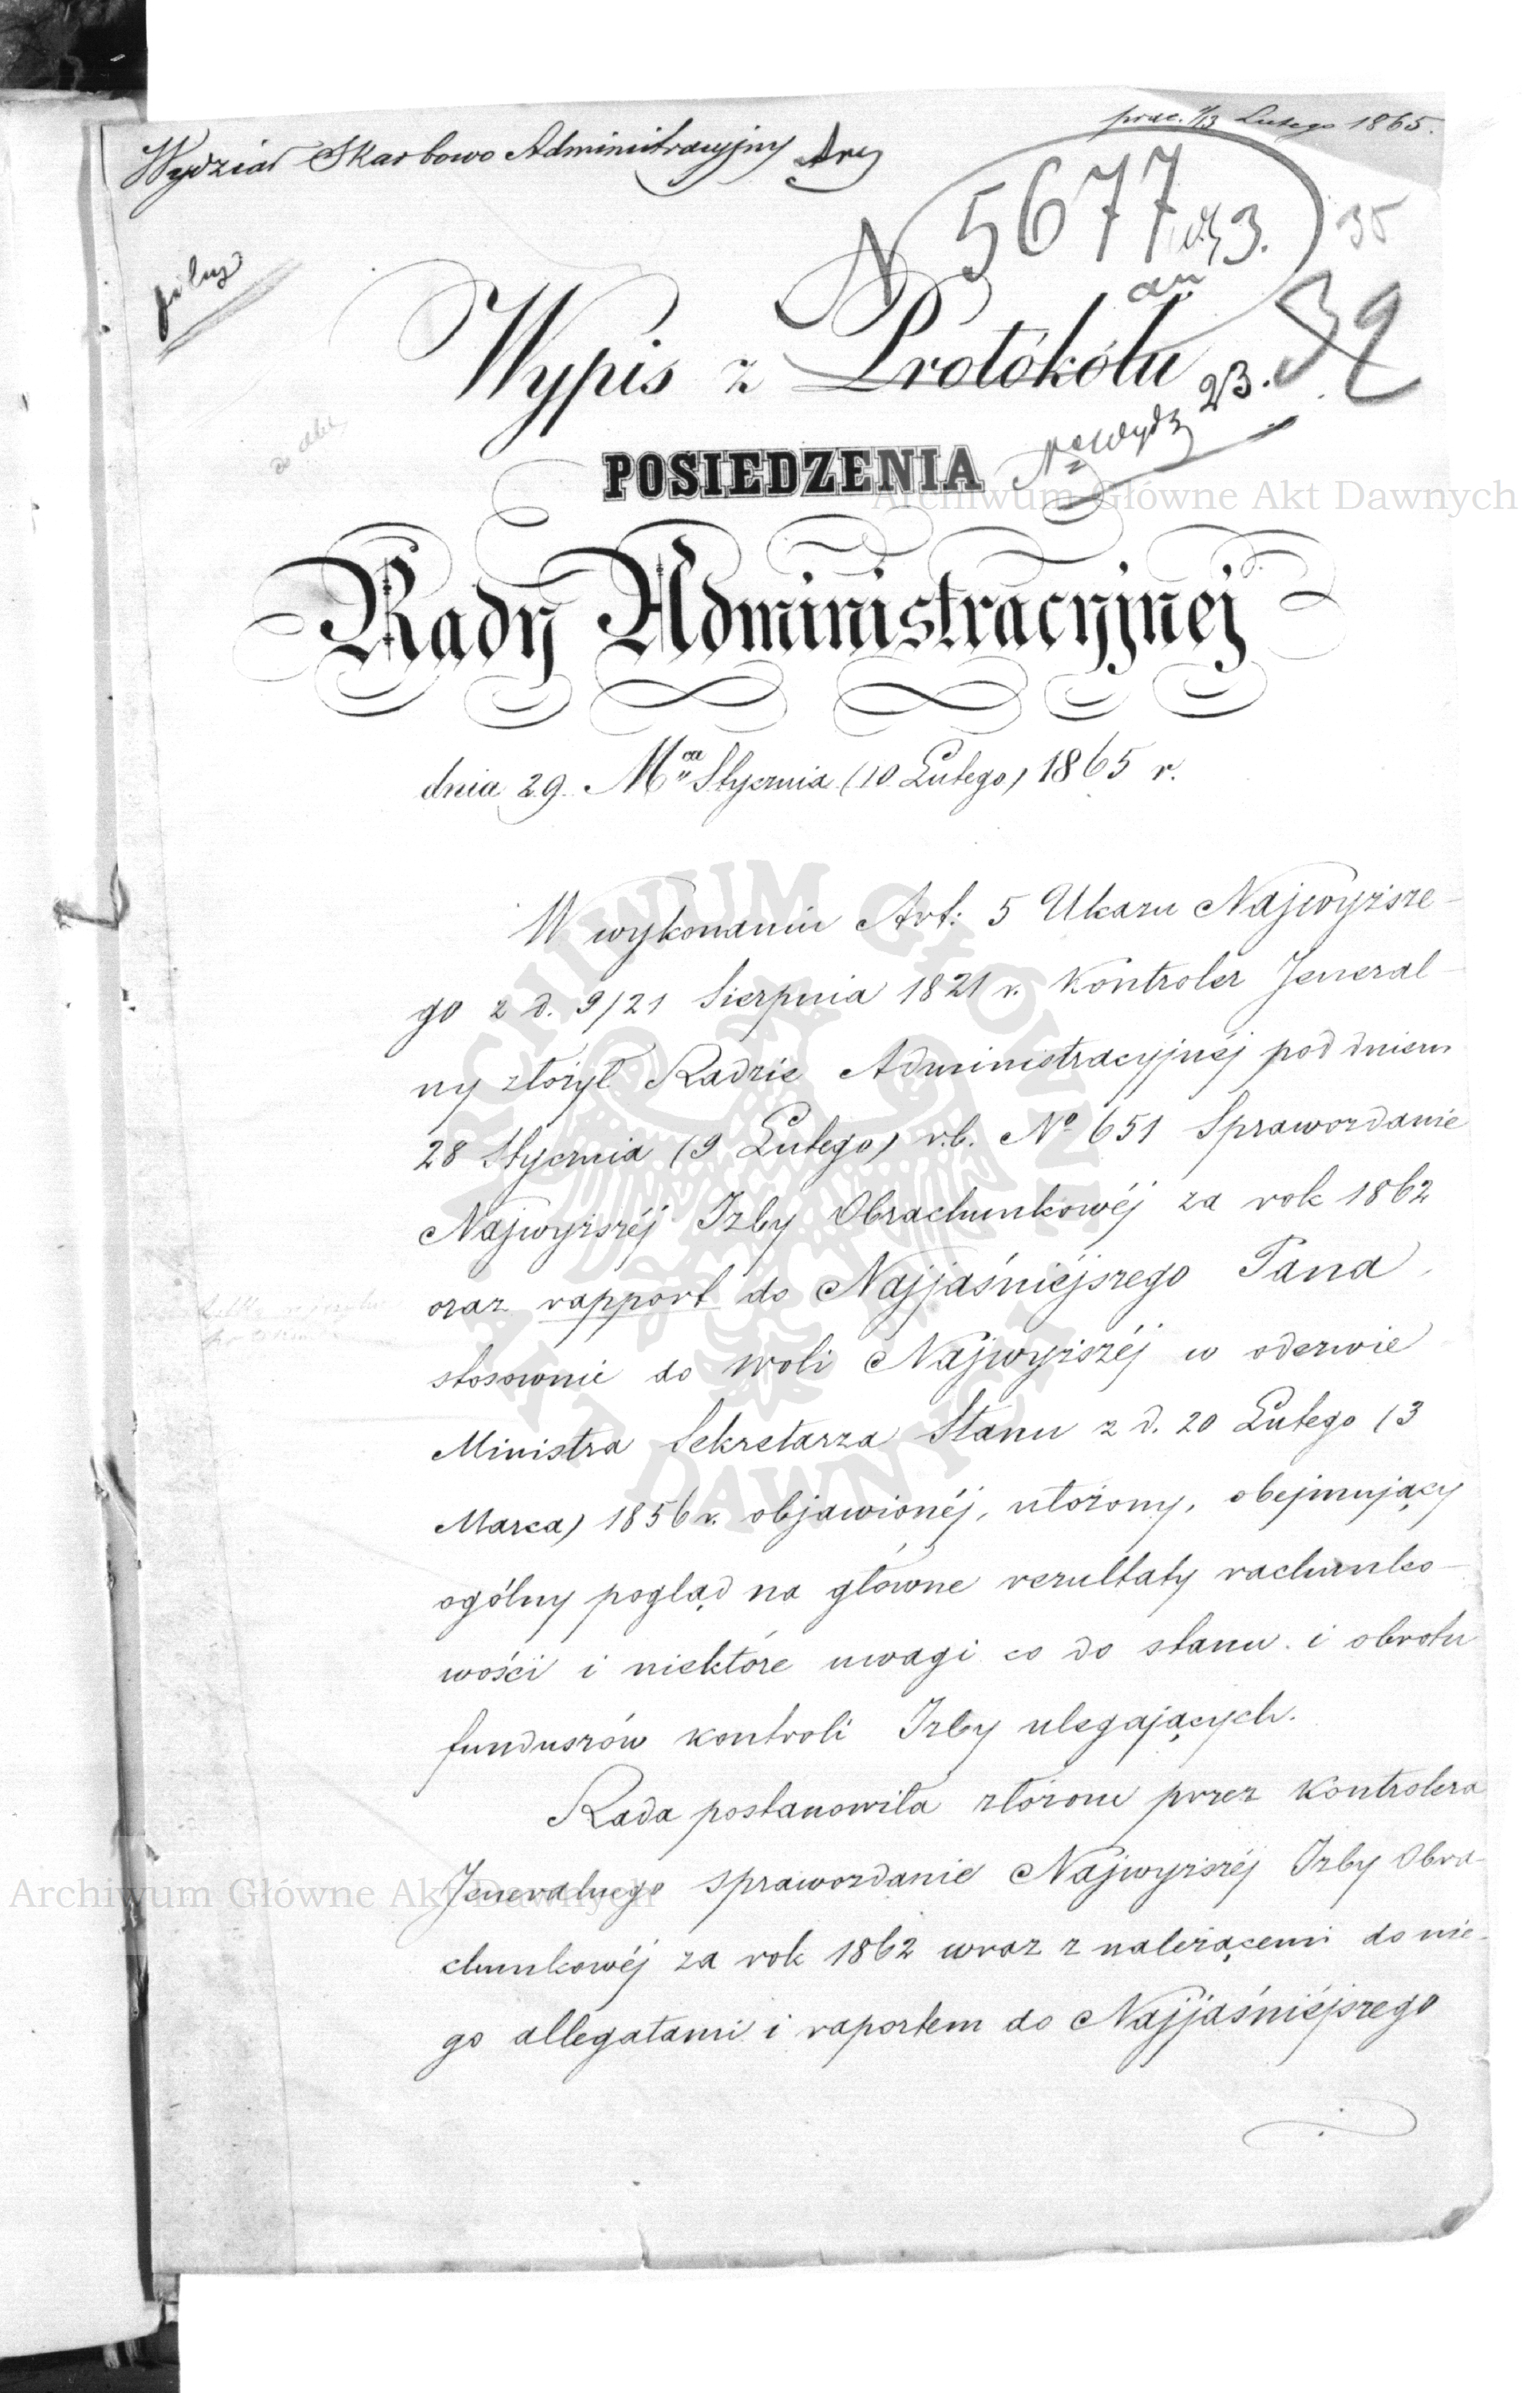 prac. 1/13 Lutego 1865.
Wydział Skarbowo Administracyjny
N 5677
35
pilny
39
Wypis z Protókółu
23.
POSIEDZENIA
Archiwum Główne Akt Dawnych
Rady Administracyjnej
dnia 29. Mca Stycznia (10 Lutego) 1865 r.
W wykonaniu Art: 5 Ukazu Najwyższe-
go z d. 9/21 Sierpnia 1821 r. Kontroler Jeneral-
ny złożył Radzie Administracyjnéj pod dniem
28 Stycznia (9 Lutego) r.b. No 651 Sprawozdanie
Najwyższéj Izby Obrachunkowéj za rok 1862
oraz rapport do Najjaśniéjszego Pana,
stosownie do woli Najwyższéj w odezwie
Ministra Sekretarza Stanu z d. 20 Lutego (3
Marca) 1856 r. objawionéj, ułożony, obejmujący
ogólny pogląd na główne rezultaty rachunko-
wości i niektóre uwagi co do stanu i obrotu
funduszów kontroli Izby ulegających.
Rada postanowiła złożone przez Kontrolera
Jeneralnego sprawozdanie Najwyższéj Izby Obra-
chunkowéj za rok 1862 wraz z należącemi do nie-
go allegatami i raportem do Najjaśniéjszego
Archiwum Główne Akt Dawnych
ARCHIWUM GŁÓWNE AKT DAWNYCH